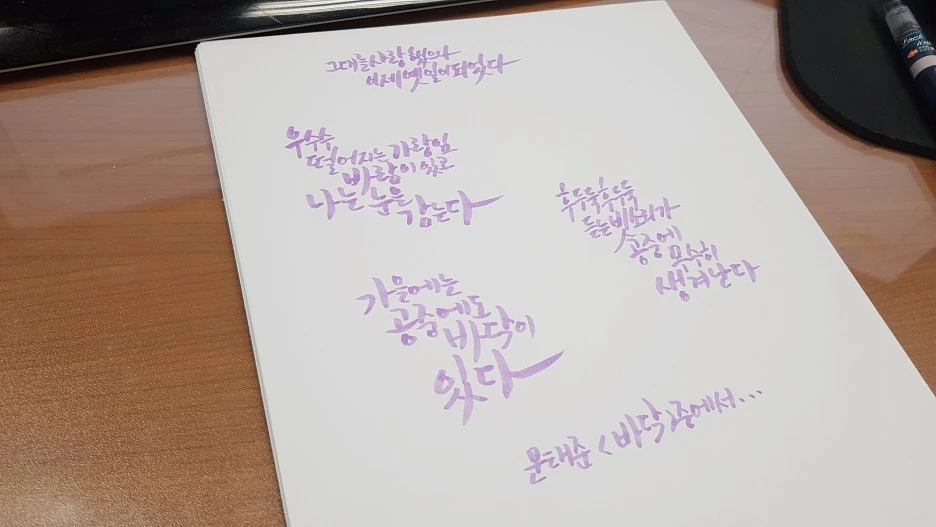 그대를 사랑했으나
이제 옛일이 되었다
우수수
떨어지는 가랑잎
바람이 있고
나는 눈을
감는다
후두둑 후두둑
듣는 빗소리가
공중에
무수히
생겨난다
가을에는
공중에도
바닥이
있다
문태준 <바닥>중에서...